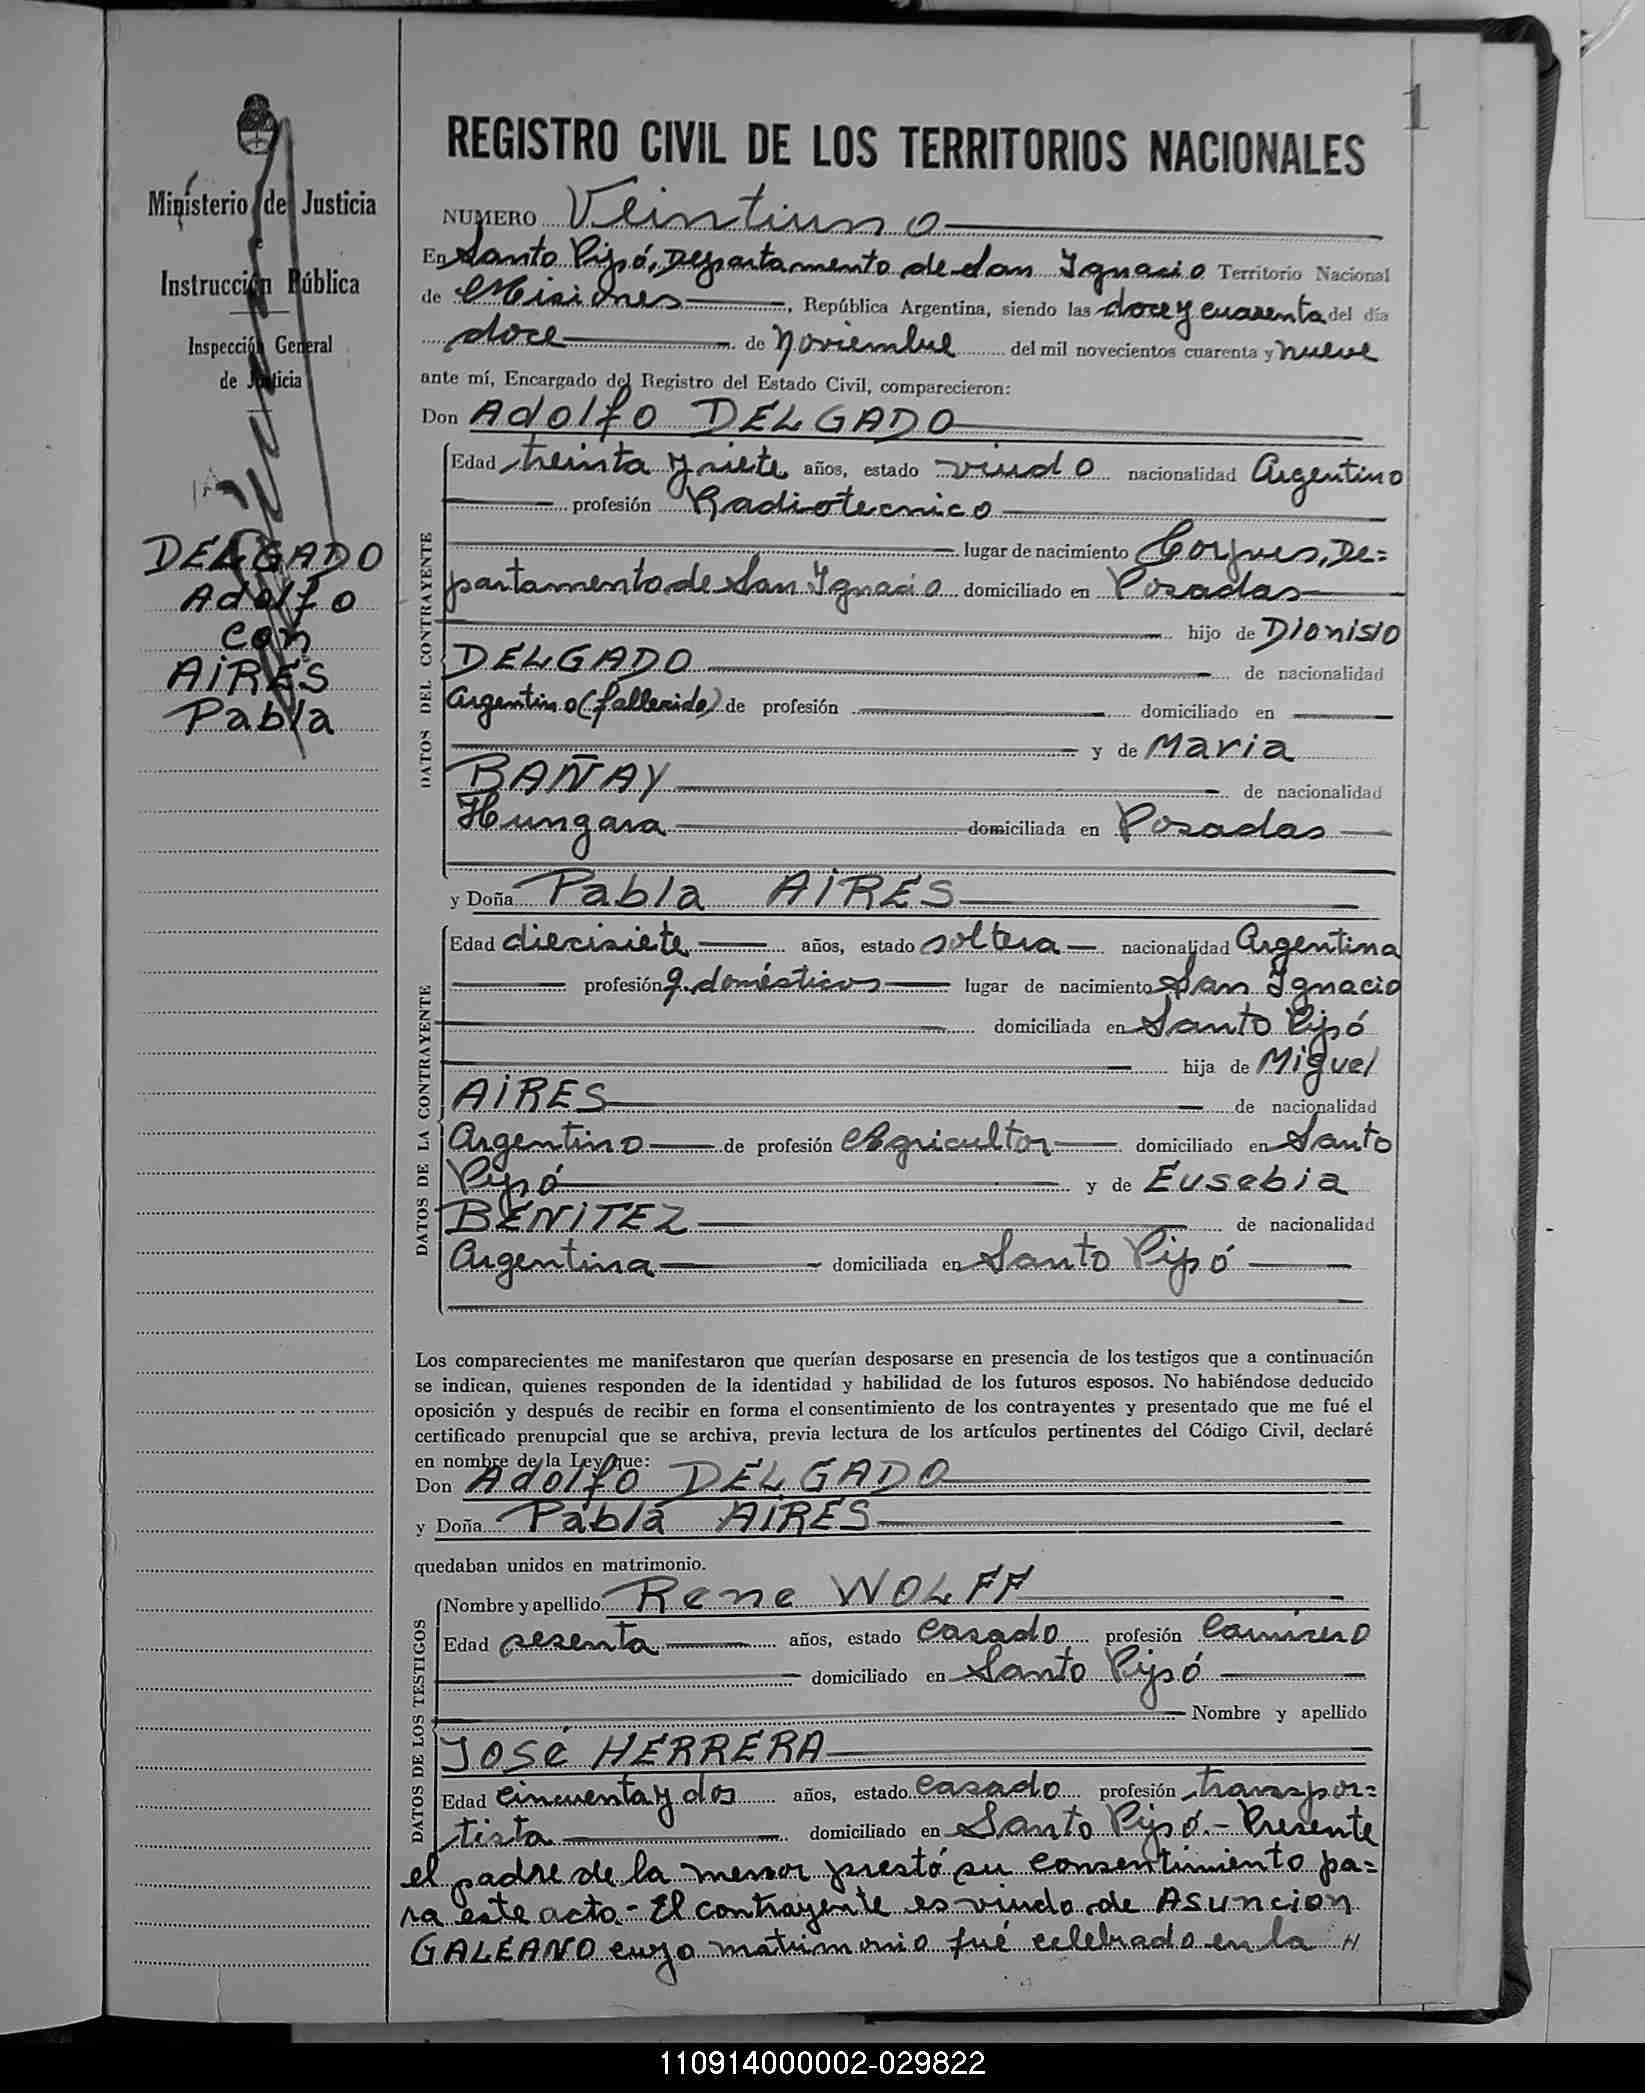 1
Ministerio de Justicia
e
Instrucción Pública
Inspección General
de Justicia
DELGADO
Adolfo
con
AIRES
Pabla
REGISTRO CIVIL DE LOS TERRITORIOS NACIONALES
NUMERO Veintiuno
En Santo Pipó, Departamento de San Ignacio Territorio Nacional
de Misiones, República Argentina, siendo las doce y cuarenta del día
doce de Noviembre del mil novecientos cuarenta y nueve
ante mí, Encargado del Registro del Estado Civil, comparecieron:
Don Adolfo DELGADO
DATOS DEL CONTRAYENTE
Edad treinta y siete años, estado viudo nacionalidad Argentino
profesión Radiotecnico
lugar de nacimiento Corpus, De=
partamento de San Ignacio domiciliado en Posadas
hijo de Dionisio
DELGADO de nacionalidad
Argentino (fallecido) de profesión domiciliado en
y de Maria
BAÑAY de nacionalidad
Hungara domiciliada en Posadas
y Doña Pabla AIRES
DATOS DE LA CONTRAYENTE
Edad diecisiete años, estado soltera nacionalidad Argentina
profesión q. domésticos lugar de nacimiento San Ignacio
domiciliada en Santo Pipó
hija de Miguel
AIRES de nacionalidad
Argentino de profesión Agricultor domiciliado en Santo
Pipó y de Eusebia
BENITEZ de nacionalidad
Argentina domiciliada en Santo Pipó
Los comparecientes me manifestaron que querían desposarse en presencia de los testigos que a continuación
se indican, quienes responden de la identidad y habilidad de los futuros esposos. No habiéndose deducido
oposición y después de recibir en forma el consentimiento de los contrayentes y presentado que me fué el
certificado prenupcial que se archiva, previa lectura de los artículos pertinentes del Código Civil, declaré
en nombre de la Ley que:
Don Adolfo DELGADO
y Doña Pabla AIRES
quedaban unidos en matrimonio.
DATOS DE LOS TESTIGOS
Nombre y apellido Rene WOLFF
Edad sesenta años, estado casado profesión Caminero
domiciliado en Santo Pipó
Nombre y apellido
José HERRERA
Edad cincuenta y dos años, estado casado profesión transpor=
tista domiciliado en Santo Pipó.- Presente
el padre de la menor prestó su consentimiento pa=
ra este acto.- El contrayente es viudo de Asuncion
GALEANO cuyo matrimonio fué celebrado en la
110914000002-029822